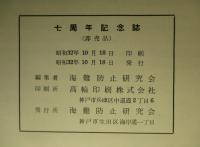 七周年記念誌
(非売品)
昭和32年10月18日 印刷
昭和32年10月18日 発行
編集者 海難防止研究会
印刷所 高輪印刷株式会社
神戸市兵庫区中道通2丁目6
発行所 海難防止研究会
神戸市生田区海岸通一丁目